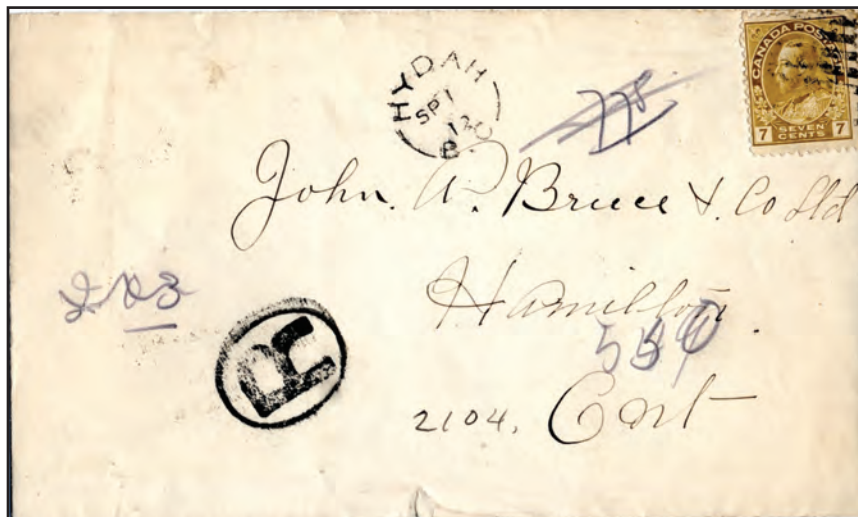 CANADA POSTAGE
7 SEVEN CENTS 7
HYDAH
SP 1
12
B.C
John. A. Bruce & Co Ltd
Hamilton
554
R
2104. Ont